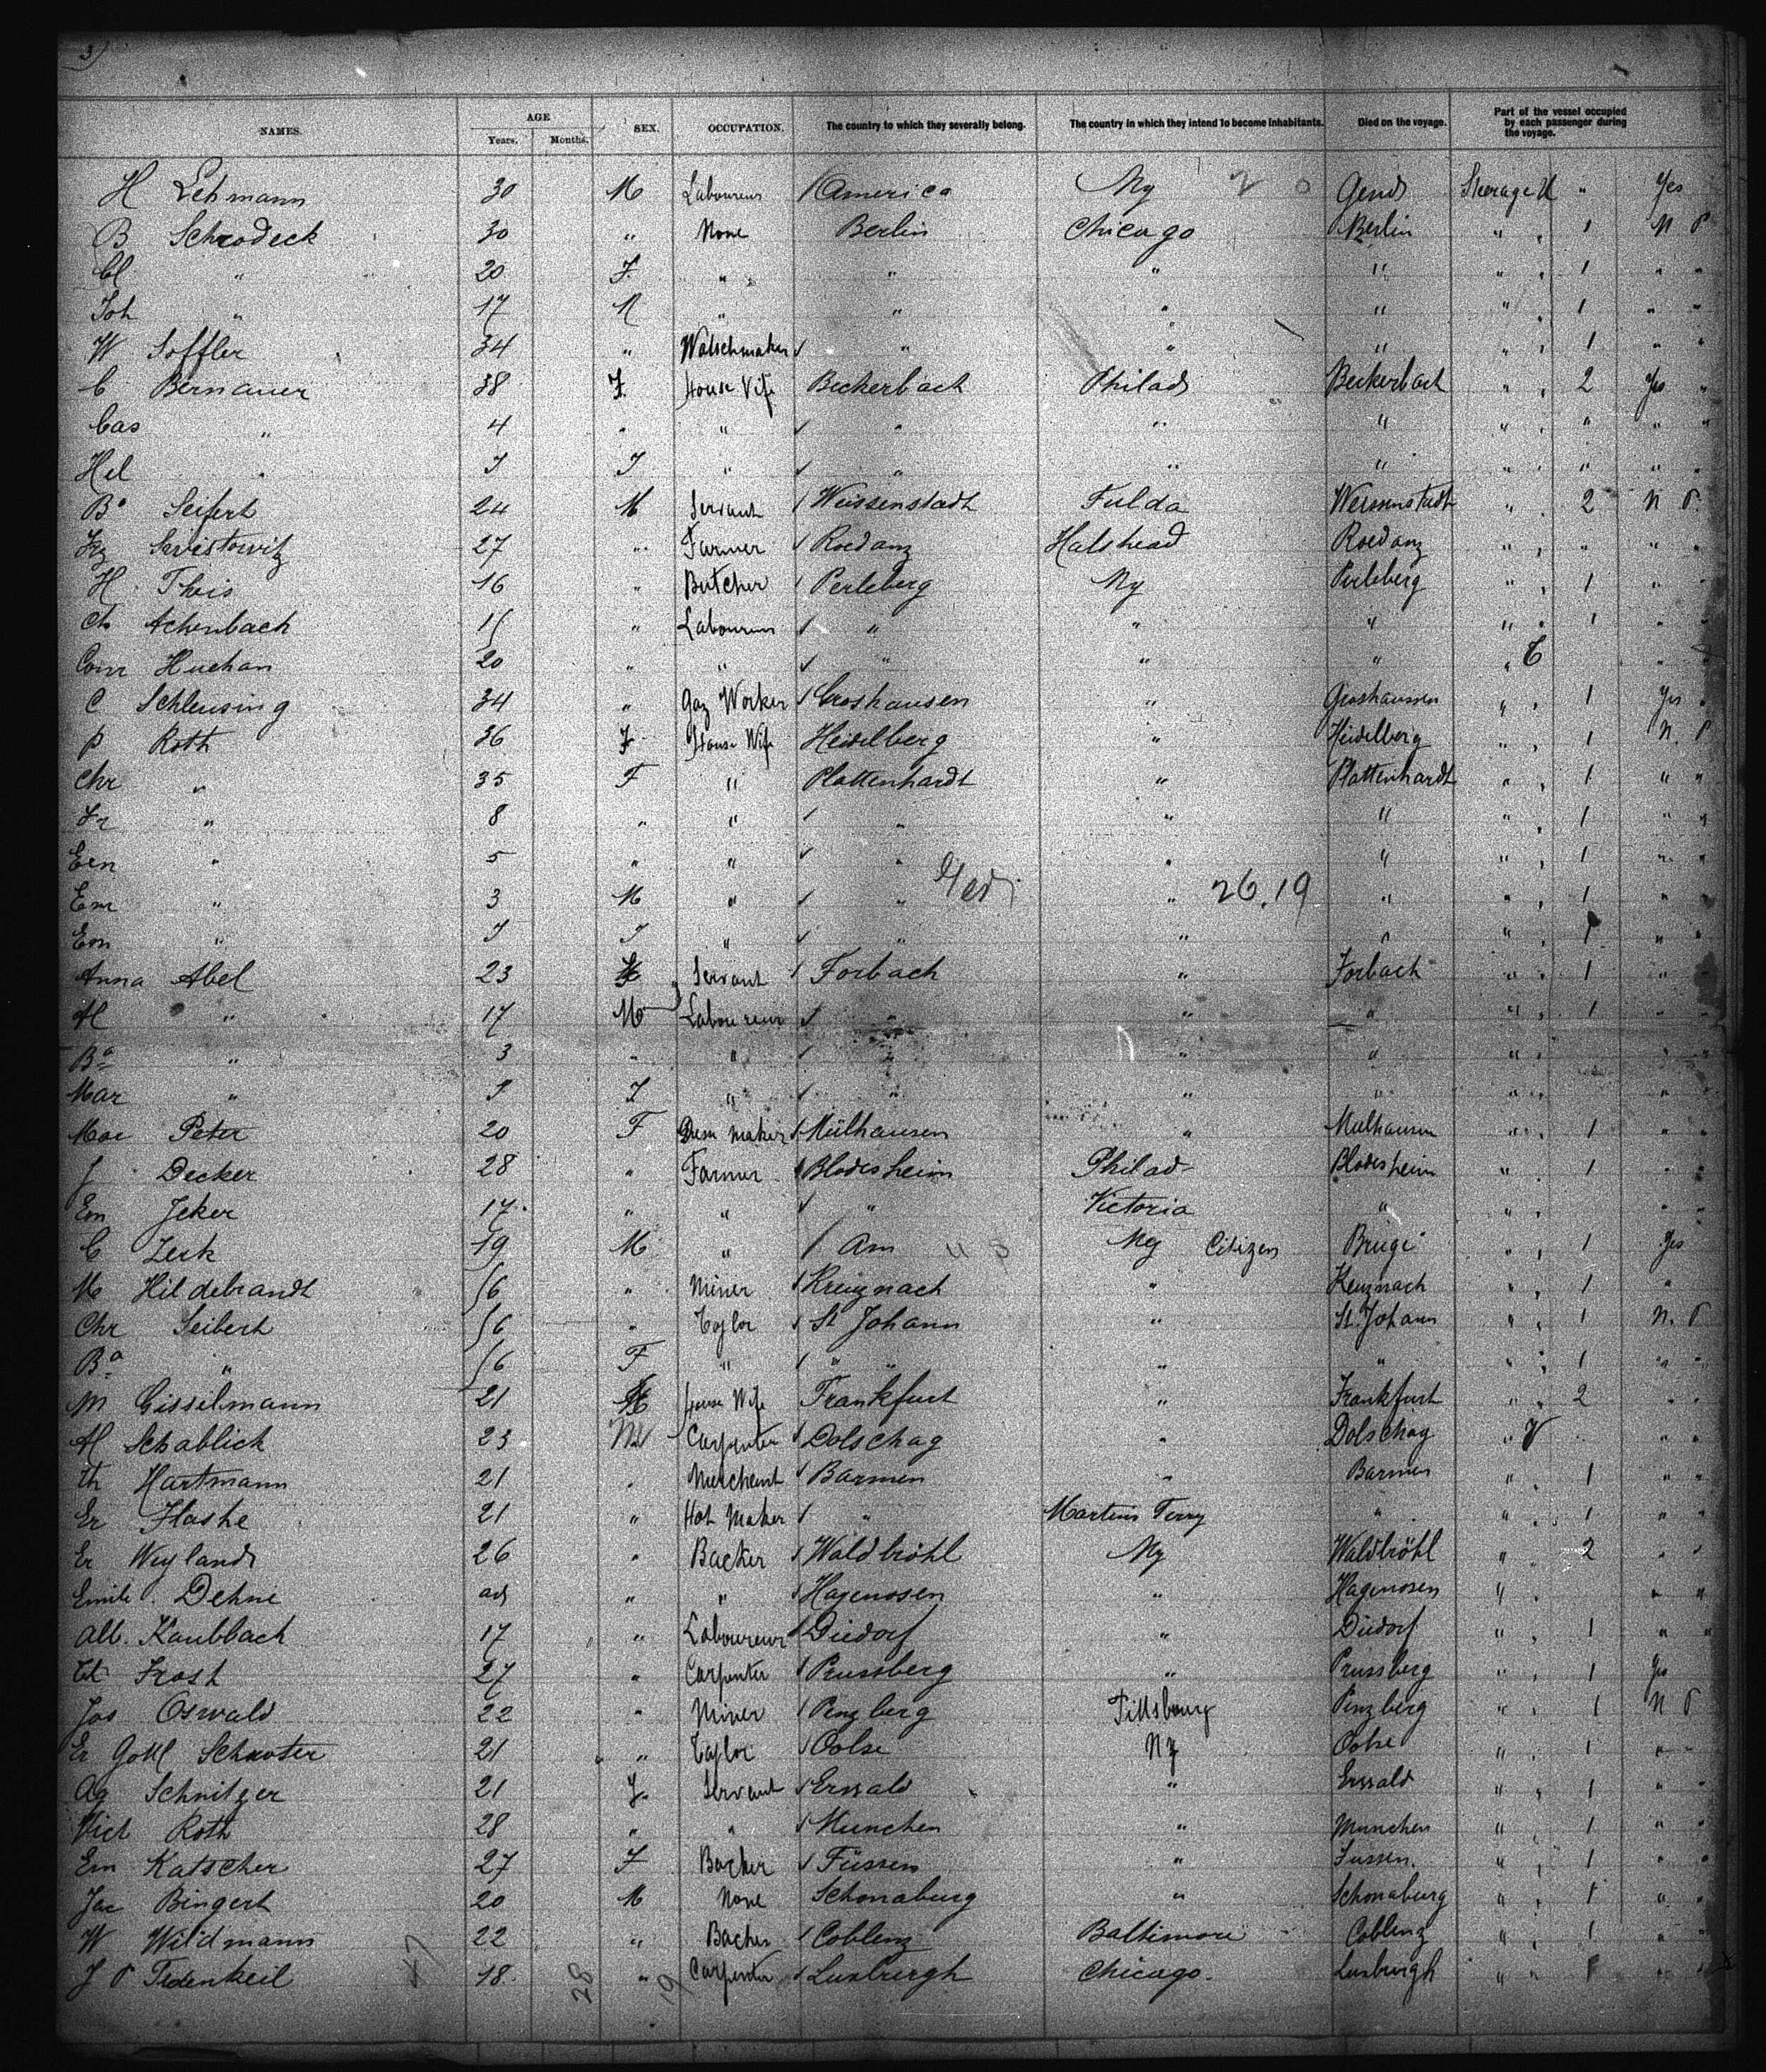 3)
NAMES. AGE Years. Months. SEX. OCCUPATION. The country to which they severally belong. The country in which they intend to become inhabitants. Died on the voyage. Part of the vessel occupied by each passenger during the voyage.
H Lehmann 30 M Laboureur America Ny 2 0 Gend Steerage " Yes
B Schrodeck 30 " None Berlin Chicago Berlin " " 1 N P
Cl " 20 F " " " " " " 1 " "
Joh " 17 M " " " " " " 1 " "
W Soffler 34 " Watschmaker " " " " " 1 " "
C Bernauer 38 F House Vife Beckerbach Philad Beckerbach " " 2 Yes "
Cas " 4 " " " " " " " " " "
Hel " J J " " " " " " " " "
Ba Seifert 24 M Servant Weissenstadt Fulda Weissenstadt " 2 N P.
Frz Swistowitz 27 " Farmer Roedanz Halshead Roedanz " " " " "
H Theis 16 " Butcher Perleberg Ny Perleberg " " 1 " "
Ch Achenbach 15 " Laboureur " " " " " 1 " "
Conr Huehan 20 " " " " " " C " "
C Schleusing 34 " Gaz Worker Groshausen " Groshausen " " 1 Yes "
P Roth 36 F House Wife Heidelberg " Heidelberg " " 1 N. P
Chr " 35 F " Plattenhardt " Plattenhardt " " 1 " "
Fr " 8 " " " " " " " 1 " "
Een " 5 " " " " " " " 1 " "
Em " 3 M " " " 26.19 " " " 1 " "
Em " J J " " " " " " 1 " "
Anna Abel 23 F Servant Forbach " Forbach " " 1 " "
Al " 17 M Laboureur " " " " " 1 " "
Ba " 3 " " " " " " " " "
Mar " J J " " " " " " " "
Mae Peter 20 F Dress maker Mülhausen " Mulhausen " " 1 " "
J Decker 28 " Farmer Blodesheim Philad Blodesheim " " 1 " "
Em Jeker 17 " " " Victoria " " " " "
C Zerk 19 M " Am Ny Citizen Brugi " " 1 Yes
M Hildebrandt 56 " Miner Kreuznach " Keuznach " " 1 "
Chr Seibert 56 " Taylor St Johann " St Johann " " 1 N. P
Ba " 56 F " " " " " " " 1 " "
M Gisselmann 21 F House Wife Frankfurt " Frankfurt " " 2 " "
Al Schablich 23 M Carpenter Dolschag " Dolschag " V " "
th Hartmann 21 " Merchant Barmen " Barmen " 1 " "
Er Hashe 21 " Hat Maker " Martins Ferry " " " 1 " "
Er Weyland 26 " Backer Waldbröhl Ny Waldbröhl " 2 " "
Emile Dehne ad " " Hagenosen " Hagenosen " " "
Alb. Kaubbach 17 " Laboureur Diedorf " Diedorf " " 1 " "
Frosh 27 " Carpenter Prussberg " Prussberg " " 1 Yes
Jos Oswald 22 " Miner Penzberg Pittsbourg Penzberg " " 1 N P
Er Gottl Schuster 21 " Taylor Oolse Ny Oolse " " 1 " "
Ag Schnitzer 21 F. Servant Erwald " Erwald " " 1 " "
Vict Roth 28 " " Munchen " Munchen " " 1 " "
Em Katscher 27 F Backer Füssen " Fussen. " " 1 " "
Jac Bingert 20 M None Schonaburg " Schonaburg " " 1 " "
W Wildmann 22 " Backer Coblenz Baltimore Coblenz " " 1 " "
J P Tedenkeil 18. " Carpenter Luxburgh Chicago. Luxburgh " " 1 " "
47 28 19